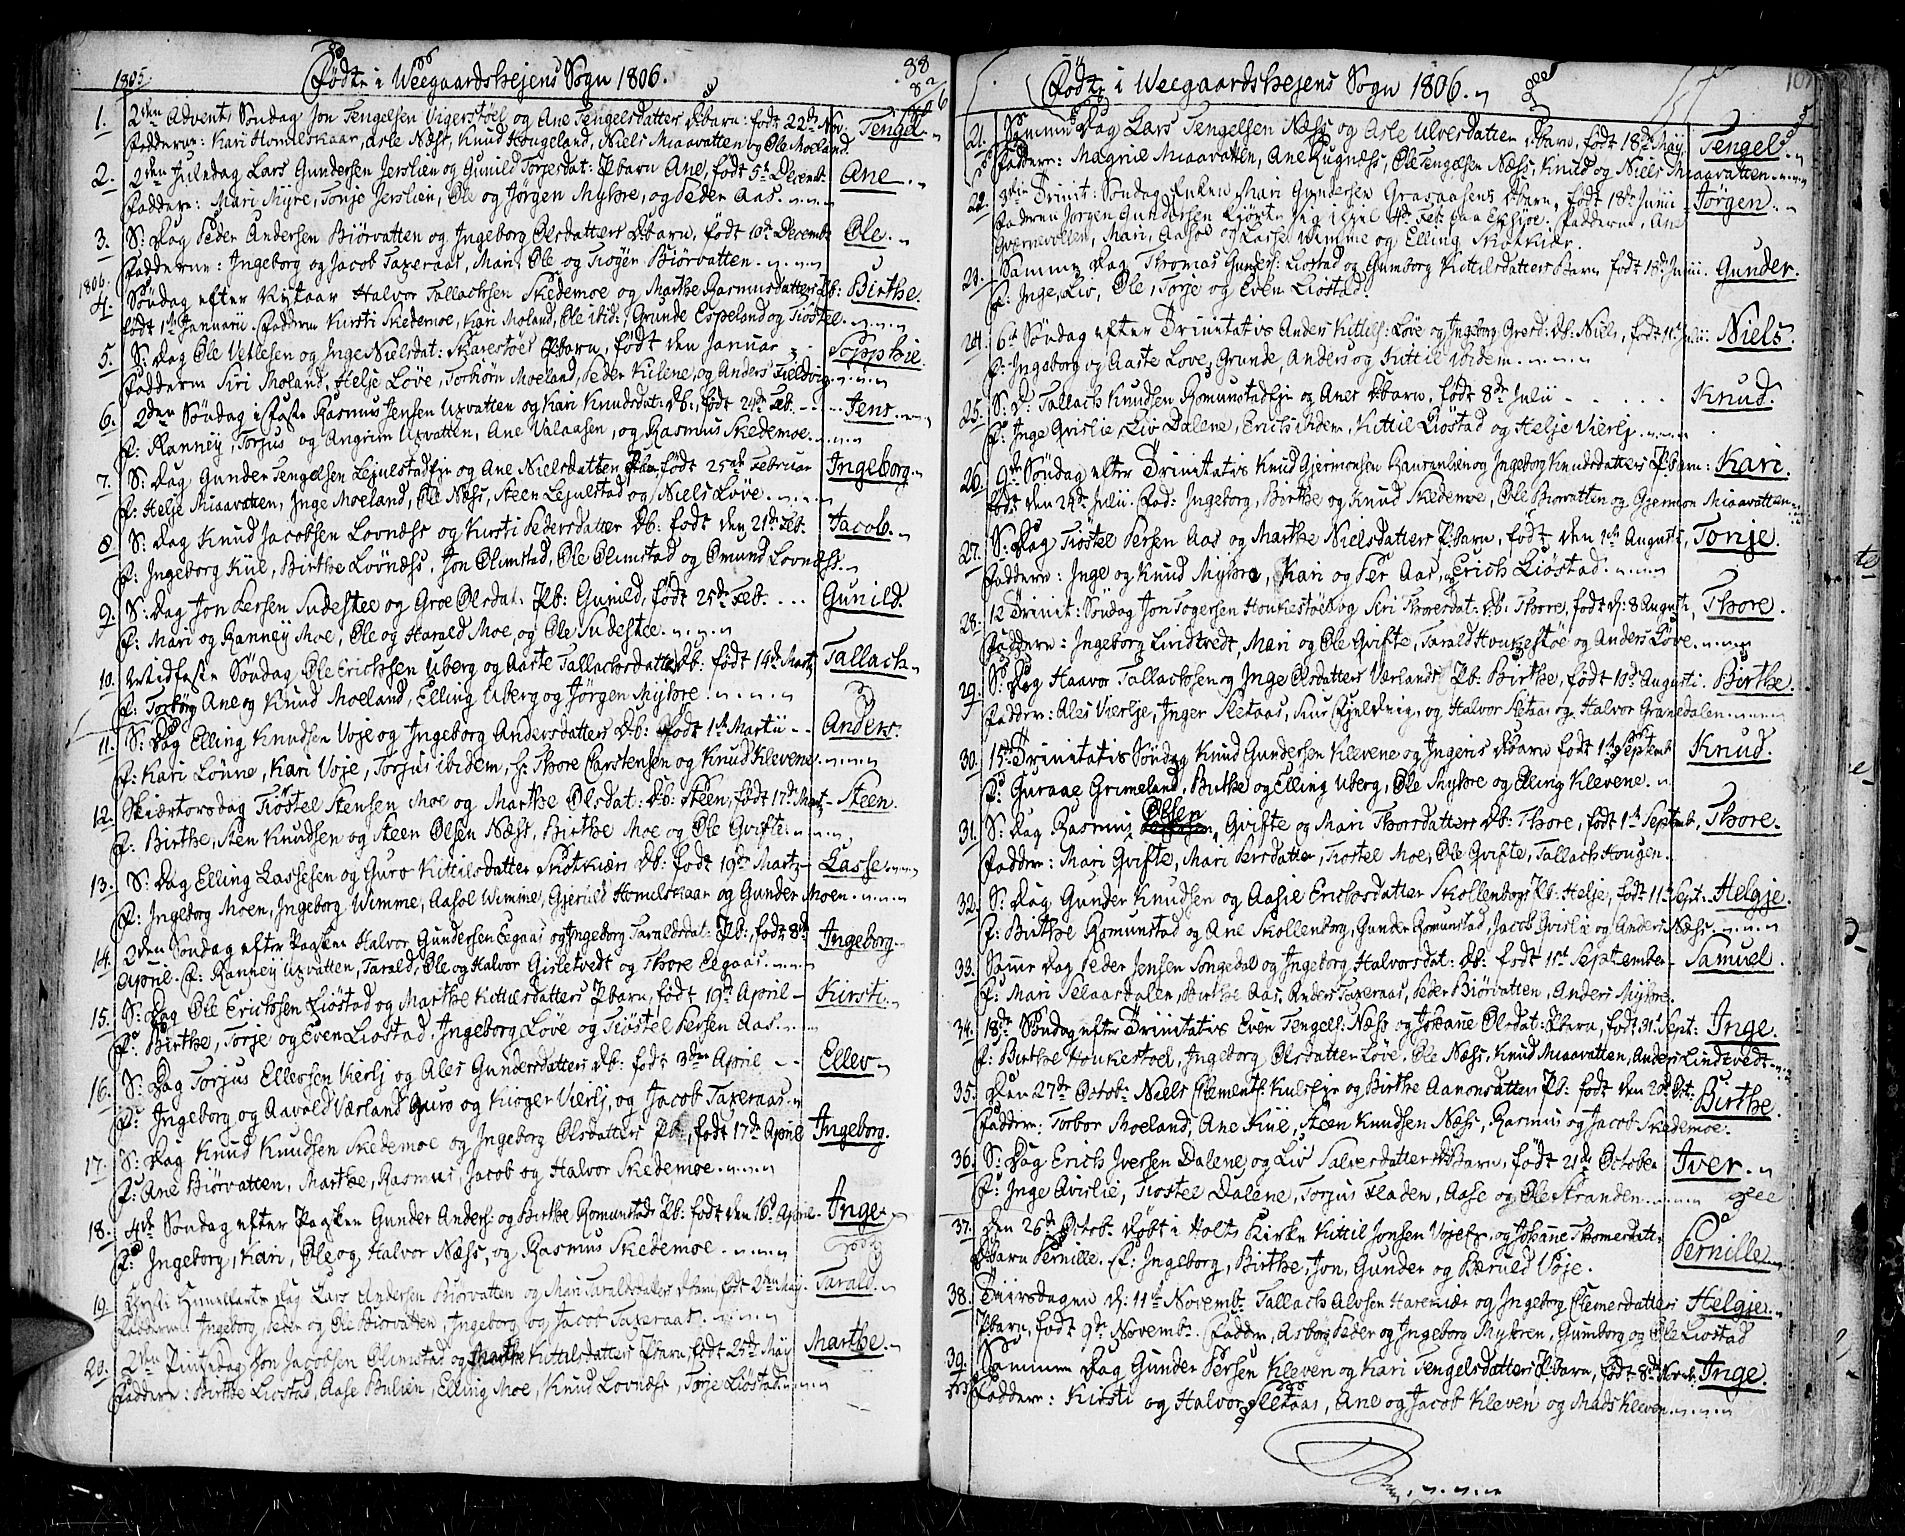 1805.
Fødte i Weegaardsheiens Sogn 1806.
38
1. 2den Advent Søndag Jon Tengelsen Vigerstøel og Ane Tengelsdatters Dbarn: født 22de Nov. Tengel
Fadderne: Kari Homelskaar, Asle Næss, Knud Hougeland, Niels Miaavatten og Ole Moeland.
2. 2den Juledag Lars Gundersen Jerslien og Gunild Torjersdat: Pbarn Ane, født 5te Decemb. Ane.
Faddere: Mari Myre, Tonje Jerslien, Ole og Jørgen Myhre, og Peder Aas.
3. S: Dag Peder Andersen Biørvatten og Ingeborg Olsdatters Dbarn, født 10de Decembr Ole.
Fadderne: Ingeborg og Jacob Taxeraas, Mari, Ole og Trogen Biørvatten.
1806.
4. Søndag efter Nytaar Halvor Tallachsen Skedemoe og Marthe Rasmusdatters Pb: Birthe.
født 1te Januarii. Fadderne Kirsti Skedemoe, Kari Moland, Ole ibid:, Grunde Espeland og Tiøstel.
5. S: Dag Ole Vetlesen og Inge Nielsdat: Skarestøes Pbarn, født den Januar Sopphie
Fadderne Siri Moland, Helje Løve, Torbiørn Moeland, Peder Kilene, og Anders Fieldvig.
6. 2den Søndag i Faste Rasmus Jensen Uxvatten og Kari Knudsdat: Db:, født 24de Feb. Jens
F: Ranney, Torjus og Angrim Uxvatten, Ane Valaasen, og Rasmus Skedemoe.
7. S: Dag Gunder Tengelsen Lejulstadfje og Ane Nielsdatters Pbarn født 25de Februar Ingeborg.
F: Helje Miaavatten, Inge Moeland, Ole Næss, Steen Lejulstad og Niels Løve.
8. S: Dag Knud Jacobsen Lovnæss og Kirsti Pedersdatter Db: født den 21de Feb. Jacob.
F: Ingeborg Kiil, Birthe Lovnæss, Jon Olimstad, Ole Olimstad og Omund Lovnæss.
9. S: Dag Jon Persen Sudestee og Groe Olsdat. Pb: Gunild, født 25de Feb. Gunild.
F: Mari og Ranney Moe, Ole og Harald Moe, og Ole Sudestee.
10. Midfaste Søndag Ole Erichsen Uberg og Aaste Tallachsdatter Db: født 14de Marts Tallach
F: Torborg Ane og Knud Moeland, Elling Uberg og Jørgen Myhre.
11. S: Dag Elling Knudsen Voje og Ingeborg Andersdatters Db: født 1te Martii Anders.
F: Kari Lønne, Kari Voje, Torjus ibidem, H: Thore Carstensen og Knud Klevene.
12. Skiærtorsdag Tiøstel Stensen Moe og Marthe Olsdat: Db: Steen, født 17de Marts Steen.
F: Birthe, Sten Knudsen og Steen Olsen Næss, Birthe Moe og Ole Gvifte.
13. S: Dag Elling Lassesen og Guro Kittilsdatter Skotkiær Db: født 19de Marts Lasse
F: Ingeborg Moen, Ingeborg Wimme, Aasol Wimme, Gjeruld Homelskaar og Gunder Moen.
14. 2den Søndag efter Paaske Halvor Gundersen Eegaas og Ingeborg Taraldsdat: Pb:, født 8de Ingeborg
April. F: Ranney Uxvatten, Tarald, Ole og Halvor Gisletvedt og Thore Eegaas.
15. S: Dag Ole Erichsen Liøstad og Marthe Kittilsdatters Pbarn, født 19de April Kirsti
F: Birthe, Torje og Even Liøstad, Ingeborg Løve og Tiøstel Persen Aas.
16. S: Dag Torjus Ellefsen Vierlj og Ales Gundersdatters Db: født 3die April Ellev
F: Ingeborg og Aavald Værland Guro og Kioger Vierlj, og Jacob Taxeraas.
17. S: Dag Knud Knudsen Skedemoe og Ingeborg Olsdatters Pb:, født 17de April Ingeborg.
F: Ane Biørvatten, Marthe, Rasmus, Jacob og Halvor Skedemoe.
18. 4de Søndag efter Paasken Gunder Anders: og Birthe Romunstads Pb: født den 16de April Inge
F: Ingeborg, Kari, Ole og Halvor Næss, og Rasmus Skedemoe.
19. Christi Himmelfarts Dag Lars Andersen Biørvatten og Mari Taraldsdatters Dbarn, født 2den Maij Tarald.
Fadderne Ingeborg, Peder og Ole Biørvatten, Ingeborg og Jacob Taxeraas.
20. 2den Pintsedag Jon Jacobsen Olimstad og Marthe Kittilsdatters Pbarn, født 25de Maij Marthe.
Faddere: Birthe Liostad, Aase Bulien, Elling Moe, Knud Lovnæss, Torje Liøstad.
Fødte i Weegaardsheiens Sogn 1806.
21. Samme Dag Lars Tengelsen Næss og Asle Ulvesdatter Dbarn, født 18de Maij. Tengel
Faddere: Magnil Miaavatten, Ane Rugnæss, Ole Tengelsen Næss, Knud og Niels Miaavatten
22. 3die Trinit: Søndag Enken Mari Gundersen Graasaasens Dbarn, født 18de Junii Jørgen.
Faderen Jørgen Gundersen 4de Feb. paa Fadderne, Ane
Gverneveллen, Mari, Aasoe og Lasse Wimme og Elling Skotkiær.
23. Samme Dag Thomas Gunders: Liostad og Gunborg Kittilsdatters Barn født 18de Junii. Gunder.
F: Inge, Liv, Ole, Torje og Even Liostad.
24. 6te Søndag efter Trinitatis Anders Kittils: Løve og Ingeborg Db: Niels, født 11te Julii. Niels.
F: Ingeborg og Aaste Løve, Grunde, Anders og Kittil ibidem.
25. S: D: Tallach Knudsen Romunstadfje og Anes Dbarn, født 8de Julii Knud.
F: Inge Grislie, Liv Dalene, Erich ibidem, Kittil Liøstad og Helje Vierlj.
26. 9de Søndag efter Trinitatis Knud Gjermonsen Ranranlien og Ingeborg Knudsdatters Pbarn: Kari.
født den 24de Julii. Fad: Ingeborg, Birthe og Knud Skedemoe, Ole Biørvatten og Gjermon Miaavatten
27. S: Dag Tiøstel Persen Aas og Marthe Nielsdatters Pbarn, født den 1ste Augusti, Tonje.
Faddere: Inge og Knud Myhre, Kari og Per Aas, og Erich Liøstad.
28. 12 Trinit: Søndag Jon Togersen Houkestøe og Siri Thoresdat: Db: Thore, født d: 8 Augusti, Thore.
Faddere: Ingeborg Lindtvedt, Mari og Ole Gvifte, Tarald Houkestøe og Anders Løve.
29. S: Dag Haavor Tallachsen og Inge Olsdatters Værlands Pb: Birthe, født 10de Augusti. Birthe.
Fadder: Ales Vierlje, Inger Sletaas, Siur Fjeldvig, og Halvor Sletaas og Halvor Granedalen.
30. 15de Trinitatis Søndag Knud Gundersen Klevene og Ingeris Dbarn født 1te Septemb. Knud.
F: Guraae Grimeland, Birthe og Elling Uberg, Ole Myhre og Elling Klevene.
31. S: Dag Rasmus Olsen Gvifte og Mari Thorsdatters Db: Thore, født 1te Septemb, Thore.
Faddere: Mari Gvifte, Mari Persdatter, Tiostel Moe, Ole Gvifte, Tallach Hougen.
32. S: Dag Gunder Knudsen og Aasie Erichsdatter Skollenborg Pb: Helje, født 11te Sept: Helgje.
F: Birthe Romunstad og Ane Skollenborg, Gunder Romunstad, Jacob Qvislie og Anders Næss.
33. Samme Dag Peder Jensen Songedal og Ingeborg Halvorsdat: Db: født 11te September Samuel
F: Mari Selaasdalen, Birthe Aas, Anders Taxeraas, Peder Biørvatten, Anders Myhre.
34. 18de Søndag efter Trinitatis Even Tengels: Næss og Johane Olsdat: Pbarn, født Sept: Inge
F: Birthe Houkestoel, Ingeborg Olsdatter Løve, Ole Næss, Knud Miaavatten, Anders Lindtvedt
35. Den 27de Octobr Niels Clements: Kulsfje og Birthe Aanonsdatters Pb: født den 20de Oct. Birthe.
Faddere: Torbor Moeland, Ane Kiil, Steen Knudsen Næss, Rasmus og Jacob Skedemoe.
36. S: Dag Erich Iversen Dalene og Liv Salvesdatter Dbarn, født 21de October Iver
F: Inge Qvislie, Tiostel Dalene, Torjus Fladen, Aase og Ole Stranden.
37. Den 26de Octob. Døbt i Holts Kirke Kittil Jonsen Vojefje. og Johane Thomesdatr
Pbarn Pernille. F: Ingeborg, Birthe, Jon, Gunder og Bæruld Voje. Pernille
38. Tiirsdagen d: 11te Novembr. Tallach Alvsen Harekiær og Ingeborg Clemetsdatters Helgje.
Pbarn, født 9de Novembr. Faddere, Asborg Peder og Ingeborg Myhren, Gunborg og Ole Liostad
39. Samme Dag Gunder Persen Kleven og Kari Tengelsdatters Pbarn, født 8de Novb. Inge.
Faddere: Kirsti og Halvor Sletaas, Ane og Jacob Kleven og Mads Kleven